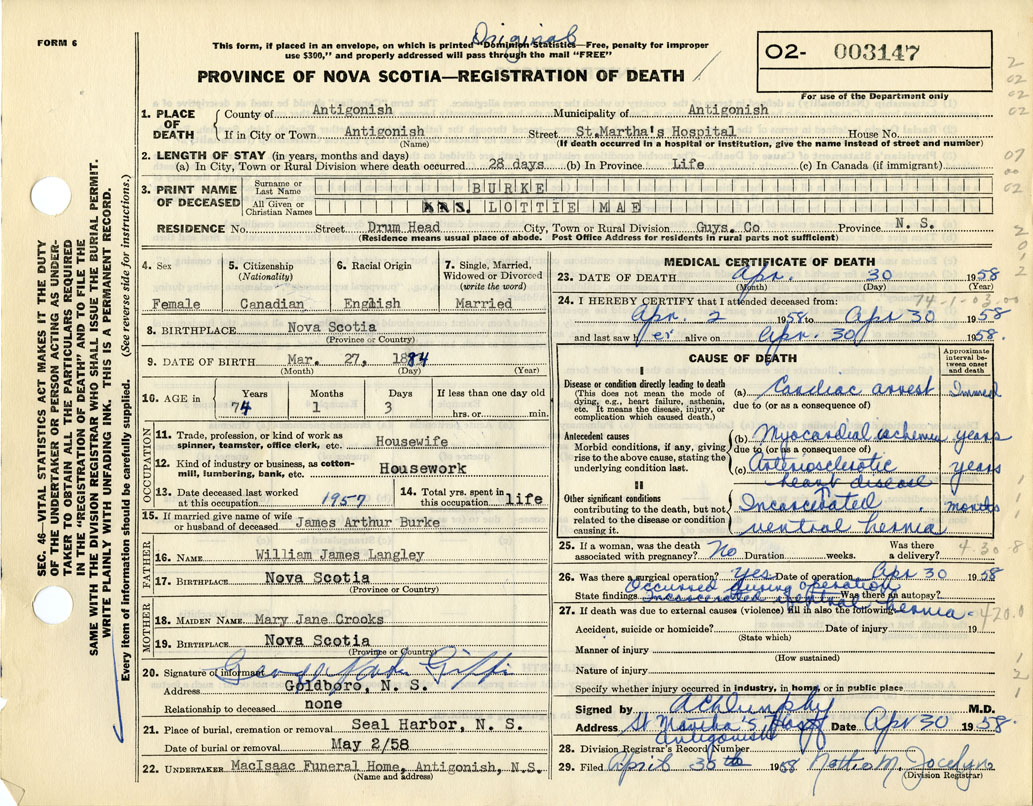 Original
FORM 6
This form, if placed in an envelope, on which is printed "Dominion Statistics—Free, penalty for improper
use $300," and properly addressed will pass through the mail "FREE"
O2- 003147
For use of the Department only
PROVINCE OF NOVA SCOTIA—REGISTRATION OF DEATH
1. PLACE OF DEATH County of Antigonish Municipality of Antigonish
If in City or Town Antigonish Street St.Martha's Hospital House No.
(Name) (If death occurred in a hospital or institution, give the name instead of street and number)
2. LENGTH OF STAY (in years, months and days)
(a) In City, Town or Rural Division where death occurred 28 days (b) In Province Life (c) In Canada (if immigrant)
3. PRINT NAME OF DECEASED Surname or Last Name BURKE
All Given or Christian Names MRS. LOTTIE MAE
RESIDENCE No. Street Drum Head City, Town or Rural Division Guys. Co Province N. S.
(Residence means usual place of abode. Post Office Address for residents in rural parts not sufficient)
4. Sex Female
5. Citizenship (Nationality) Canadian
6. Racial Origin English
7. Single, Married, Widowed or Divorced (write the word) Married
8. BIRTHPLACE Nova Scotia
(Province or Country)
9. DATE OF BIRTH Mar. 27, 1884
(Month) (Day) (Year)
10. AGE in Years 74 Months 1 Days 3 If less than one day old
hrs. or min.
OCCUPATION
11. Trade, profession, or kind of work as spinner, teamster, office clerk, etc. Housewife
12. Kind of industry or business, as cotton-mill, lumbering, bank, etc. Housework
13. Date deceased last worked at this occupation 1957
14. Total yrs. spent in this occupation life
15. If married give name of wife or husband of deceased James Arthur Burke
FATHER
16. NAME William James Langley
17. BIRTHPLACE Nova Scotia
(Province or Country)
MOTHER
18. MAIDEN NAME Mary Jane Crooks
19. BIRTHPLACE Nova Scotia
(Province or Country)
20. Signature of informant
Address Goldboro, N. S.
Relationship to deceased none
21. Place of burial, cremation or removal Seal Harbor, N. S.
Date of burial or removal May 2/58
22. UNDERTAKER MacIsaac Funeral Home, Antigonish, N.S.
(Name and address)
MEDICAL CERTIFICATE OF DEATH
23. DATE OF DEATH Apr. 30 1958
(Month) (Day) (Year)
24. I HEREBY CERTIFY that I attended deceased from: 74-1-03.00
Apr. 2 1958 to Apr 30 1958
and last saw her alive on Apr. 30 1958.
CAUSE OF DEATH
Approximate interval between onset and death
I
Disease or condition directly leading to death
(This does not mean the mode of dying, e.g., heart failure, asthenia, etc. It means the disease, injury, or complication which caused death.)
(a) Cardiac arrest Immed
due to (or as a consequence of)
Antecedent causes
Morbid conditions, if any, giving rise to the above cause, stating the underlying condition last.
(b) Myocardial ischemia years
due to (or as a consequence of)
(c) Arteriosclerotic heart disease years
II
Other significant conditions
contributing to the death, but not related to the disease or condition causing it.
Incarcerated ventral hernia months
25. If a woman, was the death associated with pregnancy? No Duration weeks. Was there a delivery? 4.30.8
26. Was there a surgical operation? yes Date of operation Apr 30 1958
Occurred during operation
State findings Incarcerated ventral hernia Was there an autopsy?
27. If death was due to external causes (violence) fill in also the following: 420.0
Accident, suicide or homicide? Date of injury 19
(State which)
Manner of injury
(How sustained)
Nature of injury
Specify whether injury occurred in industry, in home, or in public place
Signed by M.D.
Address St Martha's Hosp Antigonish Date Apr 30 1958.
28. Division Registrar's Record Number
29. Filed April 30th 1958 M. Jocelyn
(Division Registrar)
SEC. 46—VITAL STATISTICS ACT MAKES IT THE DUTY
OF THE UNDERTAKER OR PERSON ACTING AS UNDER-
TAKER TO OBTAIN ALL THE PARTICULARS REQUIRED
IN THE "REGISTRATION OF DEATH" AND TO FILE THE
SAME WITH THE DIVISION REGISTRAR WHO SHALL ISSUE THE BURIAL PERMIT.
WRITE PLAINLY WITH UNFADING INK. THIS IS A PERMANENT RECORD.
Every item of information should be carefully supplied. (See reverse side for instructions.)